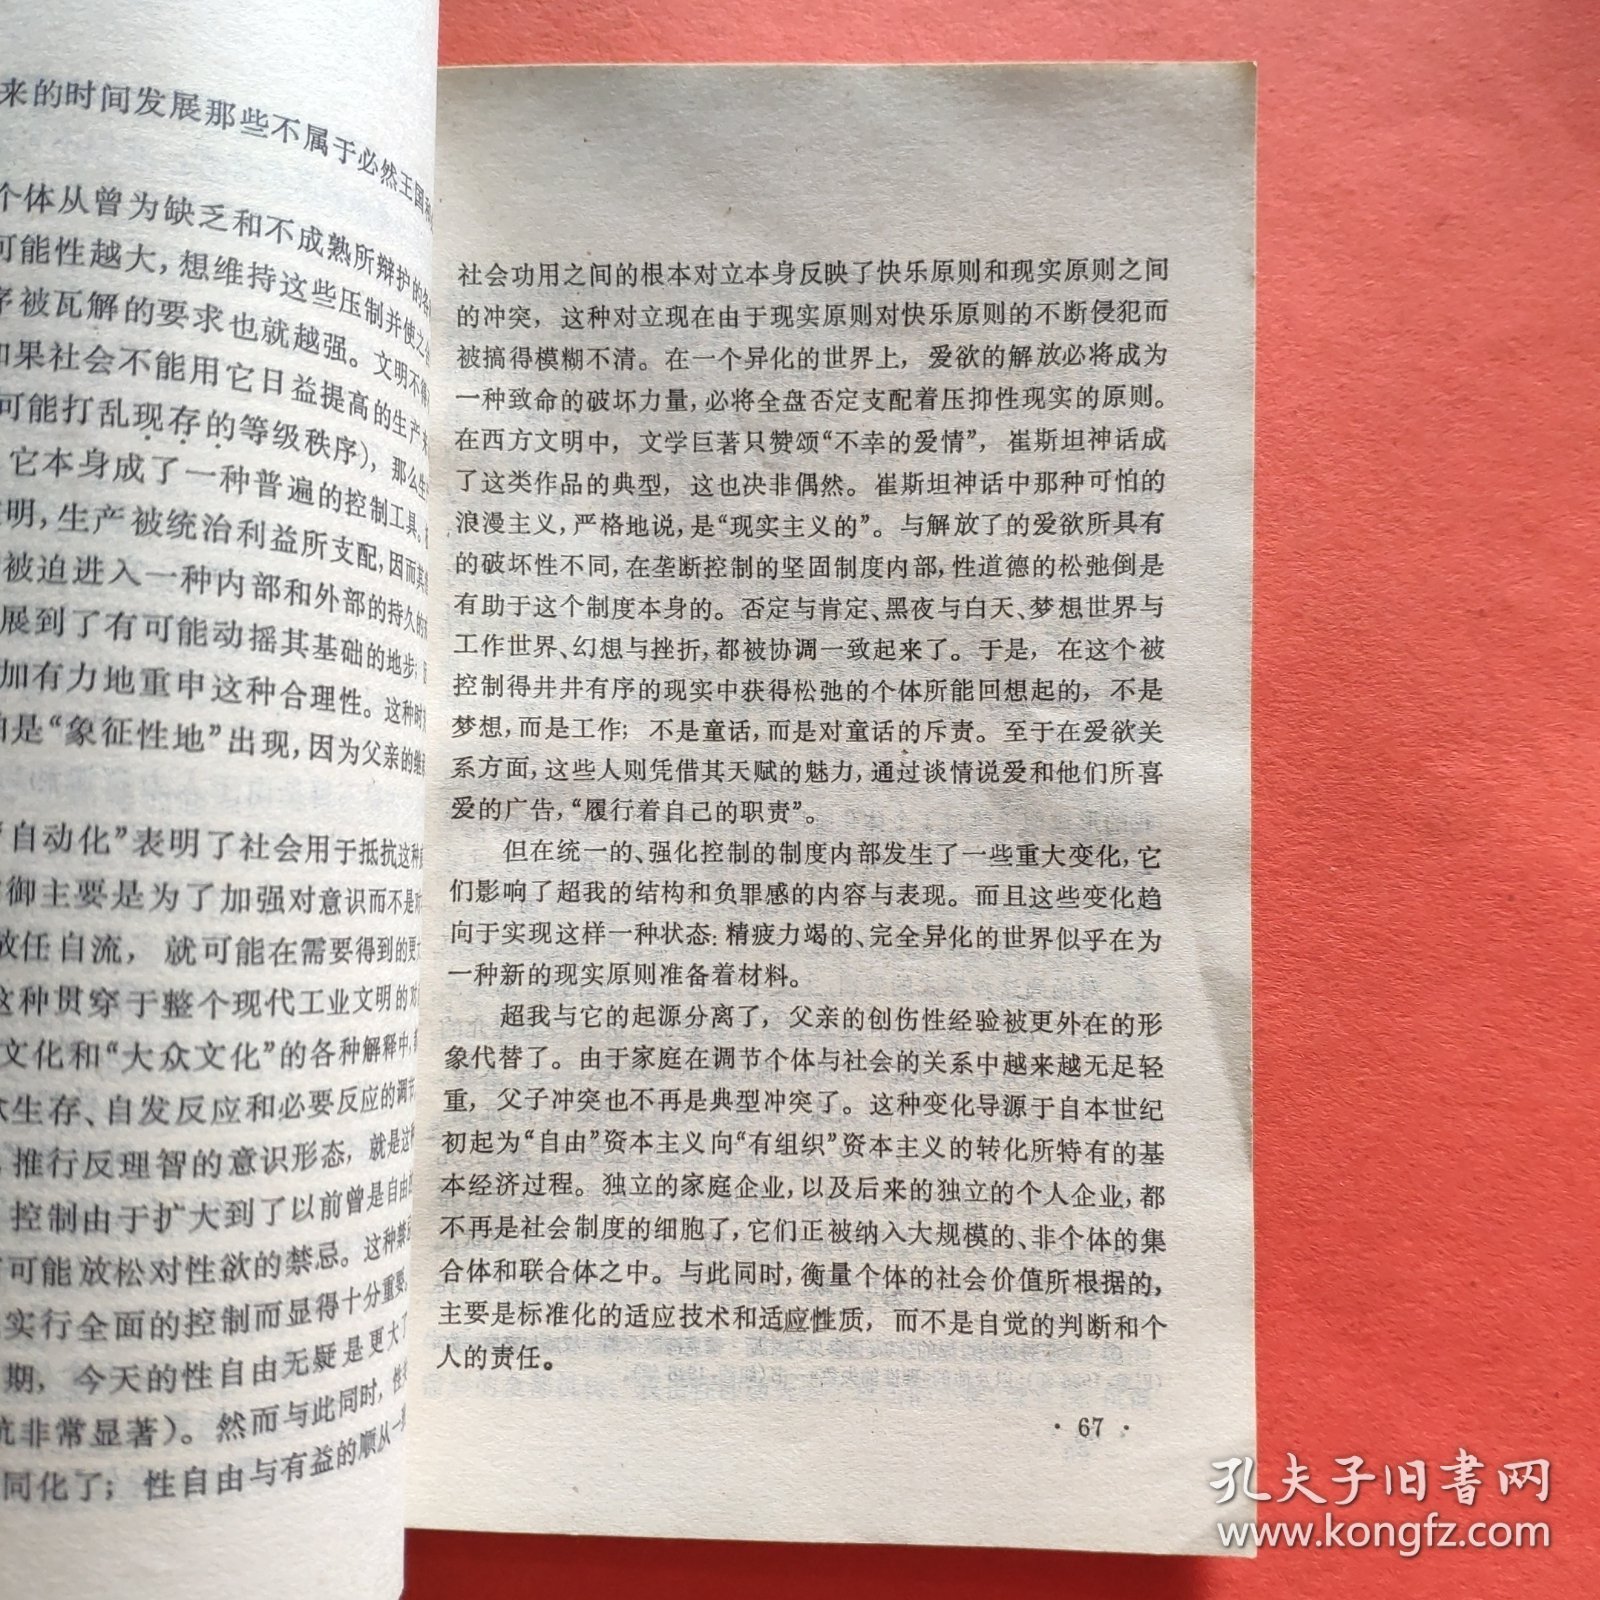 来的时间发展那些不属于必然王国和
个体从曾为缺乏和不成熟所辩护的各
可能性越大，想维持这些压制并使之
序被瓦解的要求也就越强。文明不得
如果社会不能用它日益提高的生产
可能打乱现存的等级秩序），那么生
它本身成了一种普遍的控制工具。
明，生产被统治利益所支配，因而其
被迫进入一种内部和外部的持久的
展到了有可能动摇其基础的地步；
加有力地重申这种合理性。这种时
但是“象征性地”出现，因为父亲的继
“自动化”表明了社会用于抵抗这种
御主要是为了加强对意识而不是对
放任自流，就可能在需要得到的更
这种贯穿于整个现代工业文明的对
文化和“大众文化”的各种解释中，
生存、自发反应和必要反应的调节
推行反理智的意识形态，就是这
控制由于扩大到了以前曾是自由的
可能放松对性欲的禁忌。这种禁
实行全面的控制而显得十分重要。
期，今天的性自由无疑是更大了
抗非常显著）。然而与此同时，性
同化了；性自由与有益的顺从一
社会功用之间的根本对立本身反映了快乐原则和现实原则之间
的冲突，这种对立现在由于现实原则对快乐原则的不断侵犯而
被搞得模糊不清。在一个异化的世界上，爱欲的解放必将成为
一种致命的破坏力量，必将全盘否定支配着压抑性现实的原则。
在西方文明中，文学巨著只赞颂“不幸的爱情”，崔斯坦神话成
了这类作品的典型，这也决非偶然。崔斯坦神话中那种可怕的
浪漫主义，严格地说，是“现实主义的”。与解放了的爱欲所具有
的破坏性不同，在垄断控制的坚固制度内部，性道德的松弛倒是
有助于这个制度本身的。否定与肯定、黑夜与白天、梦想世界与
工作世界、幻想与挫折，都被协调一致起来了。于是，在这个被
控制得井井有序的现实中获得松弛的个体所能回想起的，不是
梦想，而是工作；不是童话，而是对童话的斥责。至于在爱欲关
系方面，这些人则凭借其天赋的魅力，通过谈情说爱和他们所喜
爱的广告，“履行着自己的职责”。
但在统一的、强化控制的制度内部发生了一些重大变化，它
们影响了超我的结构和负罪感的内容与表现。而且这些变化趋
向于实现这样一种状态：精疲力竭的、完全异化的世界似乎在为
一种新的现实原则准备着材料。
超我与它的起源分离了，父亲的创伤性经验被更外在的形
象代替了。由于家庭在调节个体与社会的关系中越来越无足轻
重，父子冲突也不再是典型冲突了。这种变化导源于自本世纪
初起为“自由”资本主义向“有组织”资本主义的转化所特有的基
本经济过程。独立的家庭企业，以及后来的独立的个人企业，都
不再是社会制度的细胞了，它们正被纳入大规模的、非个体的集
合体和联合体之中。与此同时，衡量个体的社会价值所根据的，
主要是标准化的适应技术和适应性质，而不是自觉的判断和个
人的责任。
· 67 ·
孔夫子旧书网
www.kongfz.com